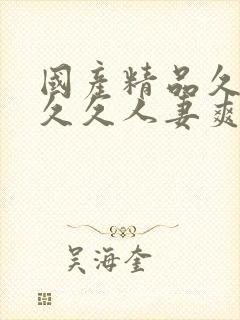 國產精品久
久久人妻爽
吴海奎